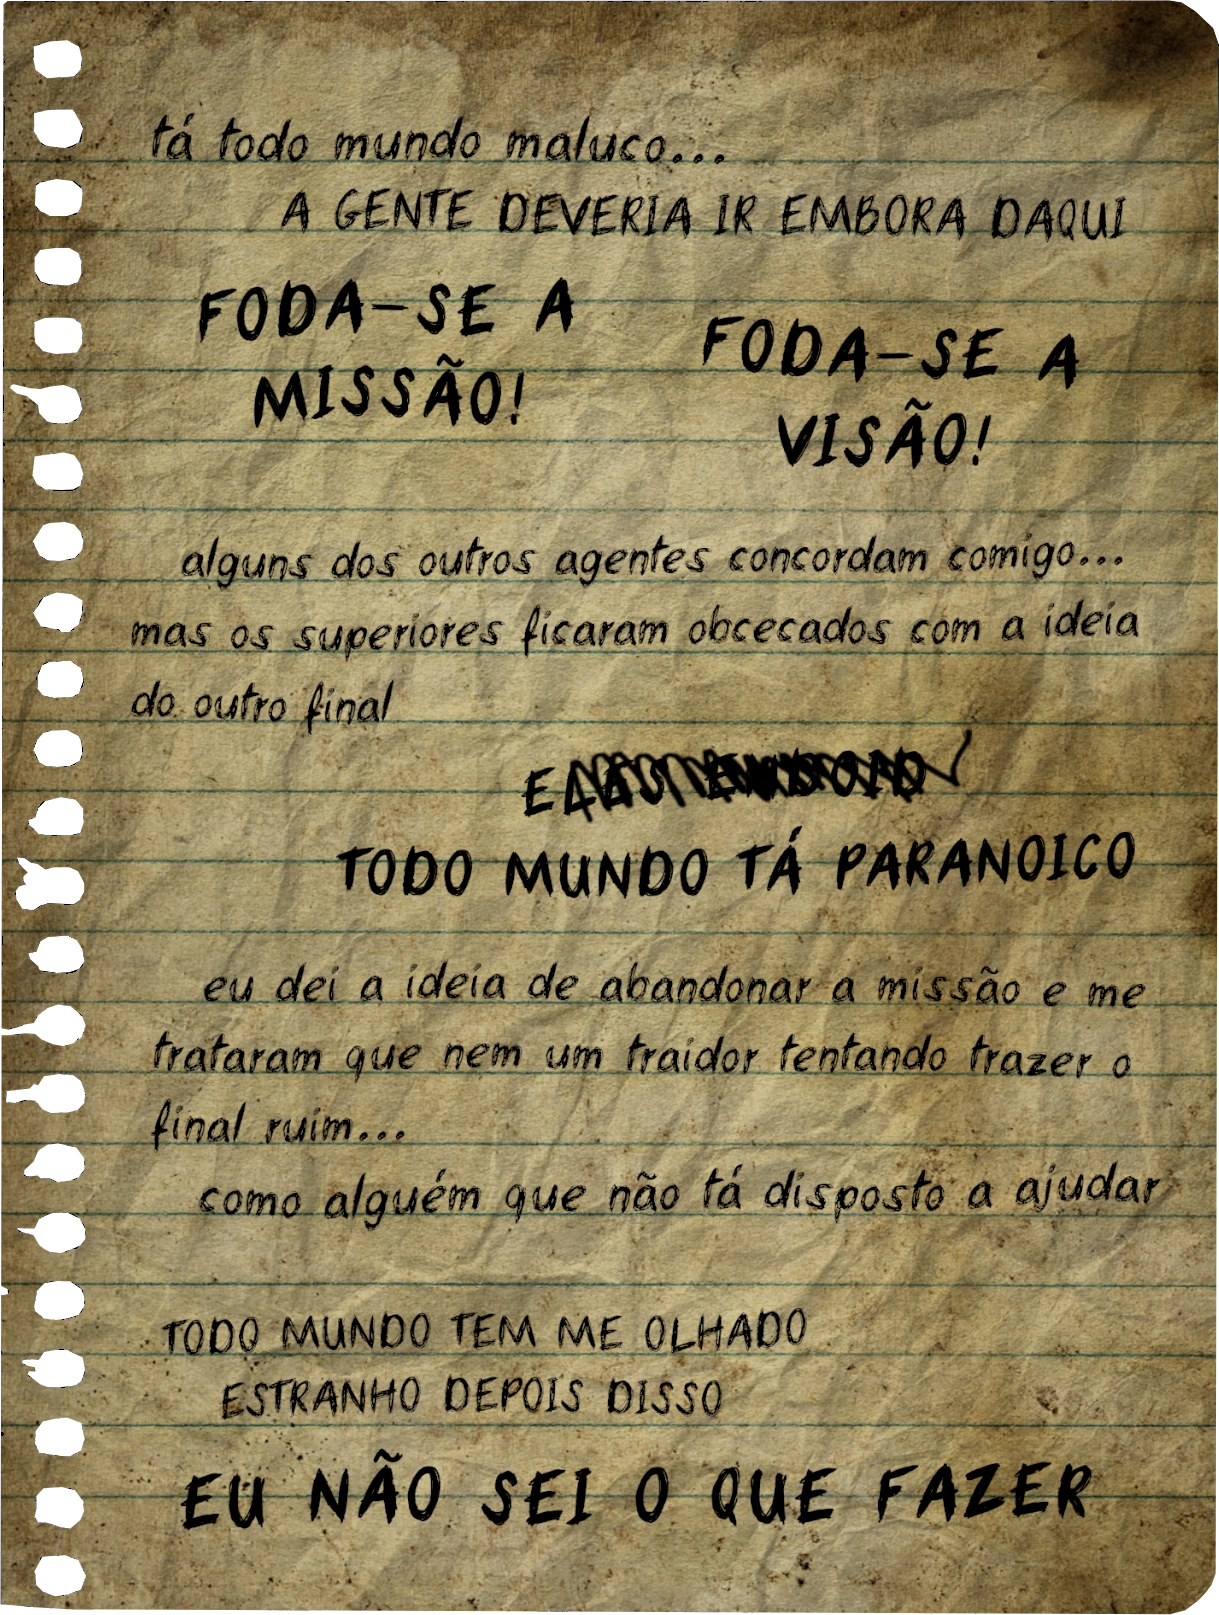 tá todo mundo maluco...
A GENTE DEVERIA IR EMBORA DAQUI
FODA-SE A
MISSÃO!
FODA-SE A
VISÃO!
alguns dos outros agentes concordam comigo...
mas os superiores ficaram obcecados com a ideia
do outro final
TODO MUNDO TÁ PARANOICO
eu dei a ideia de abandonar a missão e me
trataram que nem um traidor tentando trazer o
final ruim...
como alguém que não tá disposto a ajudar
TODO MUNDO TEM ME OLHADO
ESTRANHO DEPOIS DISSO
EU NÃO SEI O QUE FAZER